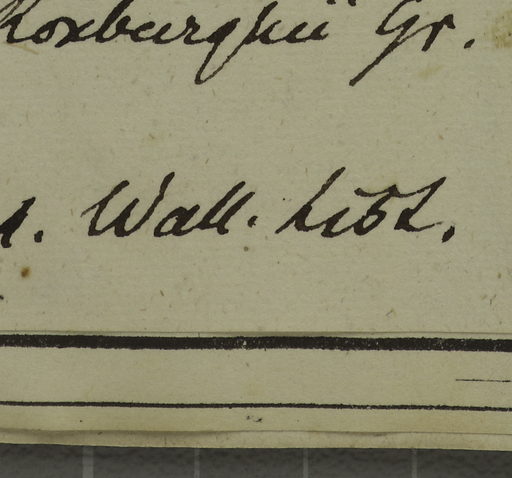 Roxburghii Gr.
. Wall. List.